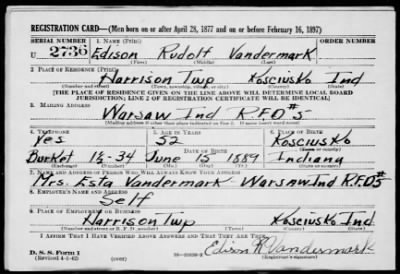 REGISTRATION CARD—(Men born on or after April 28, 1877 and on or before February 16, 1897)
SERIAL NUMBER 1. NAME (Print) ORDER NUMBER
U 2736 Edison Rudolf Vandermark
(First) (Middle) (Last)
2. PLACE OF RESIDENCE (Print)
Harrison Twp Kosciusko Ind
(Number and street) (Town, township, village, or city) (County) (State)
[THE PLACE OF RESIDENCE GIVEN ON THE LINE ABOVE WILL DETERMINE LOCAL BOARD
JURISDICTION; LINE 2 OF REGISTRATION CERTIFICATE WILL BE IDENTICAL]
3. MAILING ADDRESS
Warsaw Ind R.F.D #5
[Mailing address if other than place indicated on line 2. If same insert word same]
4. TELEPHONE 5. AGE IN YEARS 6. PLACE OF BIRTH
Yes 52 Kosciusko
DATE OF BIRTH
Burket 1½-34 June 15 1889 Indiana
7. NAME AND ADDRESS OF PERSON WHO WILL ALWAYS KNOW YOUR ADDRESS
Mrs. Esta Vandermark Warsaw Ind R.F.D5
8. EMPLOYER'S NAME AND ADDRESS
Self
9. PLACE OF EMPLOYMENT OR BUSINESS
Harrison Twp Kosciusko Ind.
(Number and street or R. F. D. number) (Town) (County) (State)
I AFFIRM THAT I HAVE VERIFIED ABOVE ANSWERS AND THAT THEY ARE TRUE.
D. S. S. Form 1
(Revised 4-1-42) (over) Edison R. Vandermark
(Registrant's signature)